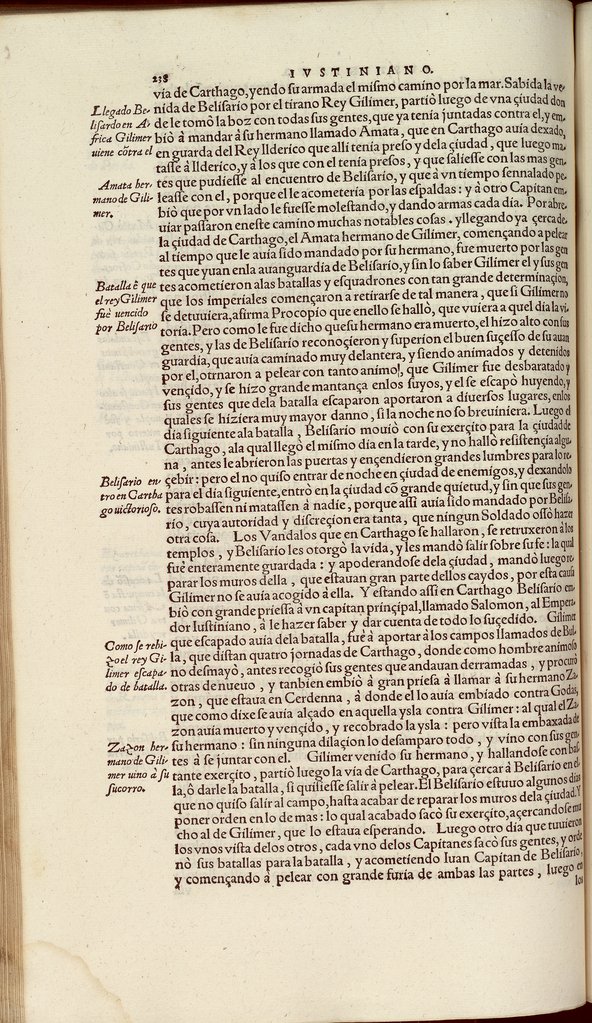 238
IVSTINIANO.
vía de Carthago, yendo ſu armada el míſmo camíno por la mar. Sabída la ve-
nída de Belíſarío por el tírano Rey Gílímer, partíò luego de vna çíudad don
de le tomô la boz con todas sus gentes, que ya tenía juntadas contra el, y em-
bíò à mandar â ſu hermano llamado Amata, que en Carthago auía dexado,
en guarda del Rey Ilderíco que allí tenía preſo y dela çíudad, que luego ma-
taſſe â Ilderíco, y â los que con el tenía preſos, y que ſalíeſſe con las mas gen-
tes que pudíeſſe al encuentro de Belíſarío, y que à vn tíempo sennalado pe-
leaſſe con el, porque el le acometería por las eſpaldas: y â otro Capítan em-
bíò que por vn lado le fueſſe moleſtando, y dando armas cada día. Por abre-
uíar paſſaron eneſte camíno muchas notables coſas. y llegando ya çerca de
la çíudad de Carthago, el Amata hermano de Gílímer, començando a pelear
al tíempo que le auía ſído mandado por ſu hermano, fue muerto por las gen
tes que yuan enla auanguardía de Belíſarío, y ſin lo ſaber Gílímer el y ſus gen
tes acometíeron alas batallas y eſquadrones con tan grande determínaçíon,
que los ímperíales començaron a retírarſe de tal manera, que ſi Gílímer no
ſe detuuíera, afírma Procopío que enello ſe hallò, que vuíera a quel día la ví-
toría. Pero como le fue dícho que ſu hermano era muerto, el hízo alto con ſus
gentes, y las de Belíſarío reconoçíeron y ſupieron el buen ſuçeſſo de ſu auan
guardía, que auía camínado muy delantera, y ſíendo anímados y detenídos
por el, otrnaron a pelear con tanto anímo, que Gílímer fue desbaratado y
vençído, y ſe hízo grande mantança enlos ſuyos, y el ſe eſcapò huyendo, y
ſus gentes que dela batalla eſcaparon aportaron a díuerſos lugares, enlos
quales ſe hízíera muy mayor danno, ſi la noche no ſo breuíníera. Luego el
día ſíguíente ala batalla, Belíſarío mouíò con ſu exerçíto para la çíudad de
Carthago, ala qual llegò el míſmo día en la tarde, y no hallò reſíſtençía algu-
na, antes le abríeron las puertas y ençendíeron grandes lumbres para lo re-
çebír: pero el no quíſo entrar de noche en cíudad de enemígos, y dexandolo
para el día ſíguíente, entrò en la çíudad cõ grande quíetud, y ſin que ſus gen-
tes robaſſen ní mataſſen à nadíe, porque aſſí auía ſido mandado por Belíſa-
río, cuya autorídad y díſcreçíon era tanta, que níngun Soldado oſſò hazer
otra coſa. Los Vandalos que en Carthago ſe hallaron, ſe retruxeron â los
templos, y Belíſarío les otorgò la vída, y les mandò ſalír ſobre ſu fe: la qual
fuê enteramente guardada: y apoderandoſe dela çíudad, mandò luego re-
parar los muros della, que eſtauan gran parte dellos caydos, por eſta cauſa
Gílímer no ſe auía acogído à ella. Y eſtando aſſí en Carthago Belíſarío em-
bíò con grande príeſſa à vn capítan prínçípal, llamado Salomon, al Empera-
dor Iuſtíníano, à le hazer ſaber y dar cuenta de todo lo ſuçedído. Gílímer
que eſcapado auía dela batalla, fuê à aportar â los campos llamados de Bul-
la, que díſtan quatro jornadas de Carthago, donde como hombre anímoſo
no deſmayò, antes recogíò ſus gentes que andauan derramadas, y procurò
otras de nueuo, y tanbíen embíò à gran príeſa à llamar â ſu hermano Za-
zon, que eſtaua en Cerdenna, à donde el lo auía embíado contra Godas,
que como díxe ſe auía alçado en aquella ysla contra Gílímer: al qual el Za-
zon auía muerto y vençído, y recobrado la ysla: pero víſta la embaxada de
ſu hermano: ſin nínguna dílaçíon lo deſamparo todo, y víno con ſus gen-
tes â ſe juntar con el. Gílímer venído ſu hermano, y hallandoſe con baſ-
tante exerçíto, partíò luego la vía de Carthago, para çercar â Belíſarío en el-
la, ô darle la batalla, ſi quíſíeſſe ſalír â pelear. El Belíſarío eſtuuo algunos días
que no quíſo ſalír al campo, haſta acabar de reparar los muros dela çíudad. Y
poner orden en lo de mas: lo qual acabado ſacò ſu exerçíto, açercandoſe mu
cho al de Gílímer, que lo eſtaua eſperando. Luego otro día que tuuíeron
los vnos víſta delos otros, cada vno delos Capítanes ſacò ſus gentes, y orde
nò sus batallas para la batalla, y acometíendo Iuan Capítan de Belíſarío,
y començando â pelear con grande furía de ambas las partes, luego en
los
Llegado Be-
liſardo en A-
frica Gilimer
uiene cõtra el
Amata her-
mano de Gili-
mer.
Batalla ẽ que
el rey Gilimer
fuè uencido
por Beliſario
Beliſario en-
tro en Cartha
go uictorioſo.
Como ſe rebi-
zo el rey Gi-
limer eſcapa-
do de batalla.
Zazon her-
mano de Gili-
mer uino â ſu
ſucorro.